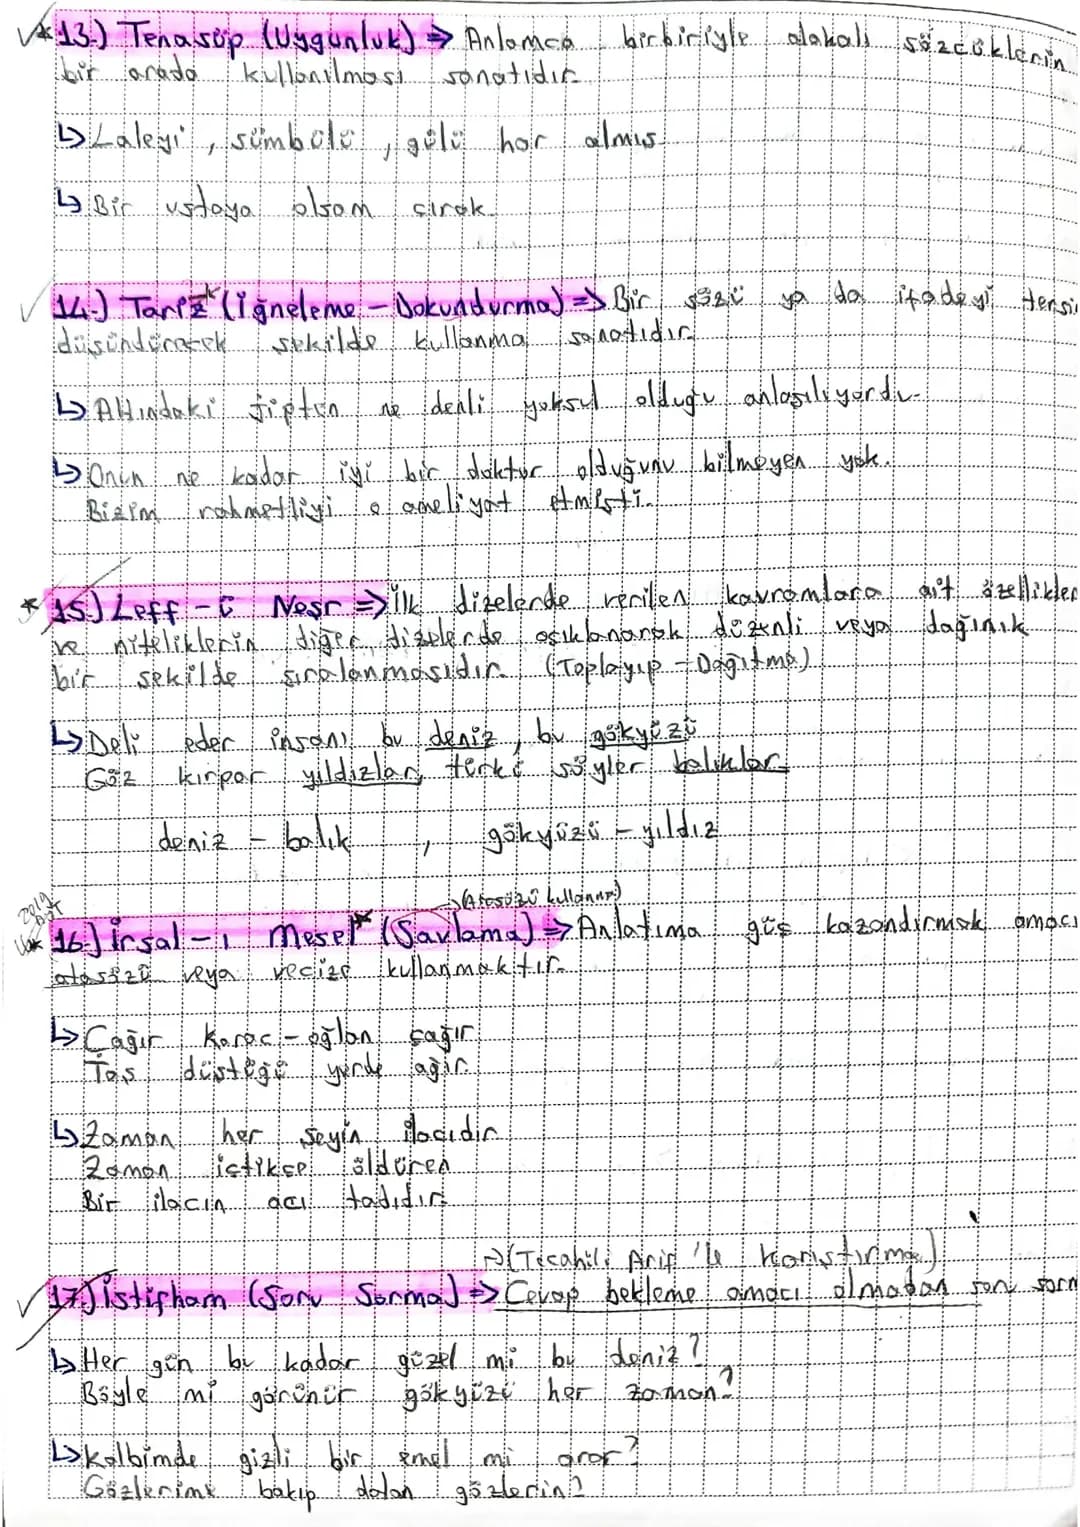 13.) Tenasüp (Uygunluk) => Anlamca birbiriyle alakalı sözcüklerin
bir arada kullanılması sanatıdır.
↳ Laleyi, sümbülü, gülü har almış.
↳ Bir ustaya olsam çırak.
14.) Tariz* (İğneleme - Dokundurma) => Bir sözü ya da ifadeyi tersin
düşündürecek şekilde kullanma sanatıdır.
↳ Altındaki jipten ne denli yoksul olduğu anlaşılıyordu.
↳ Onun ne kadar iyi bir doktor olduğunu bilmeyen yok.
Bizim rahmetliyi o ameliyat etmişti.
* 15.) Leff - ü Neşr => İlk dizelerde verilen kavramlara ait özellikler
ve niteliklerin diğer dizelerde açıklanarak düzenli veya dağınık
bir şekilde sıralanmasıdır. (Toplayıp - Dağıtma)
↳ Deli eder insanı bu deniz, bu gökyüzü
Göz kırpar yıldızlar, türkü söyler balıklar
deniz - balık, gökyüzü - yıldız
2019
→(Atasözü kullanımı)
16.) İrsal - ı Mesel* (Savlama) => Anlatıma güç kazandırmak amacı
atasözü veya vecize kullanmaktır.
↳ Çağır Karac-oğlan çağır
Taş düştüğü yerde ağır
↳ Zaman her şeyin ilacıdır
Zaman içtikçe öldüren
Bir ilacın acı tadıdır
→(Tecahili Arif 'le karıştırma)
17.) İstifham (Soru Sorma) => Cevap bekleme amacı olmadan soru sorm
↳ Her gün bu kadar güzel mi bu deniz?
Böyle mi görünür gökyüzü her zaman?
↳ Kalbimde gizli bir emel mi arar?
Gözlerime bakıp dalan gözlerin?